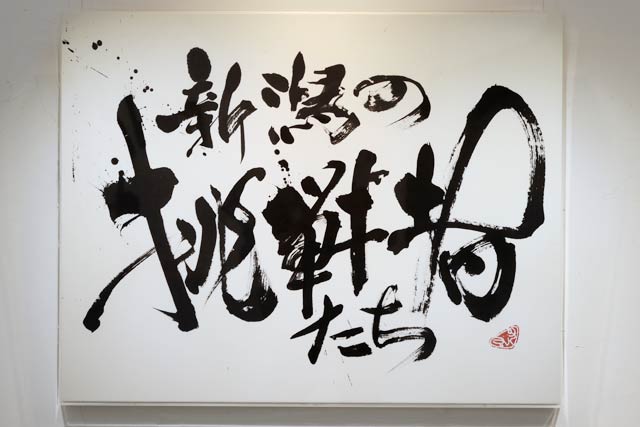 新潟の
挑戦者
たち